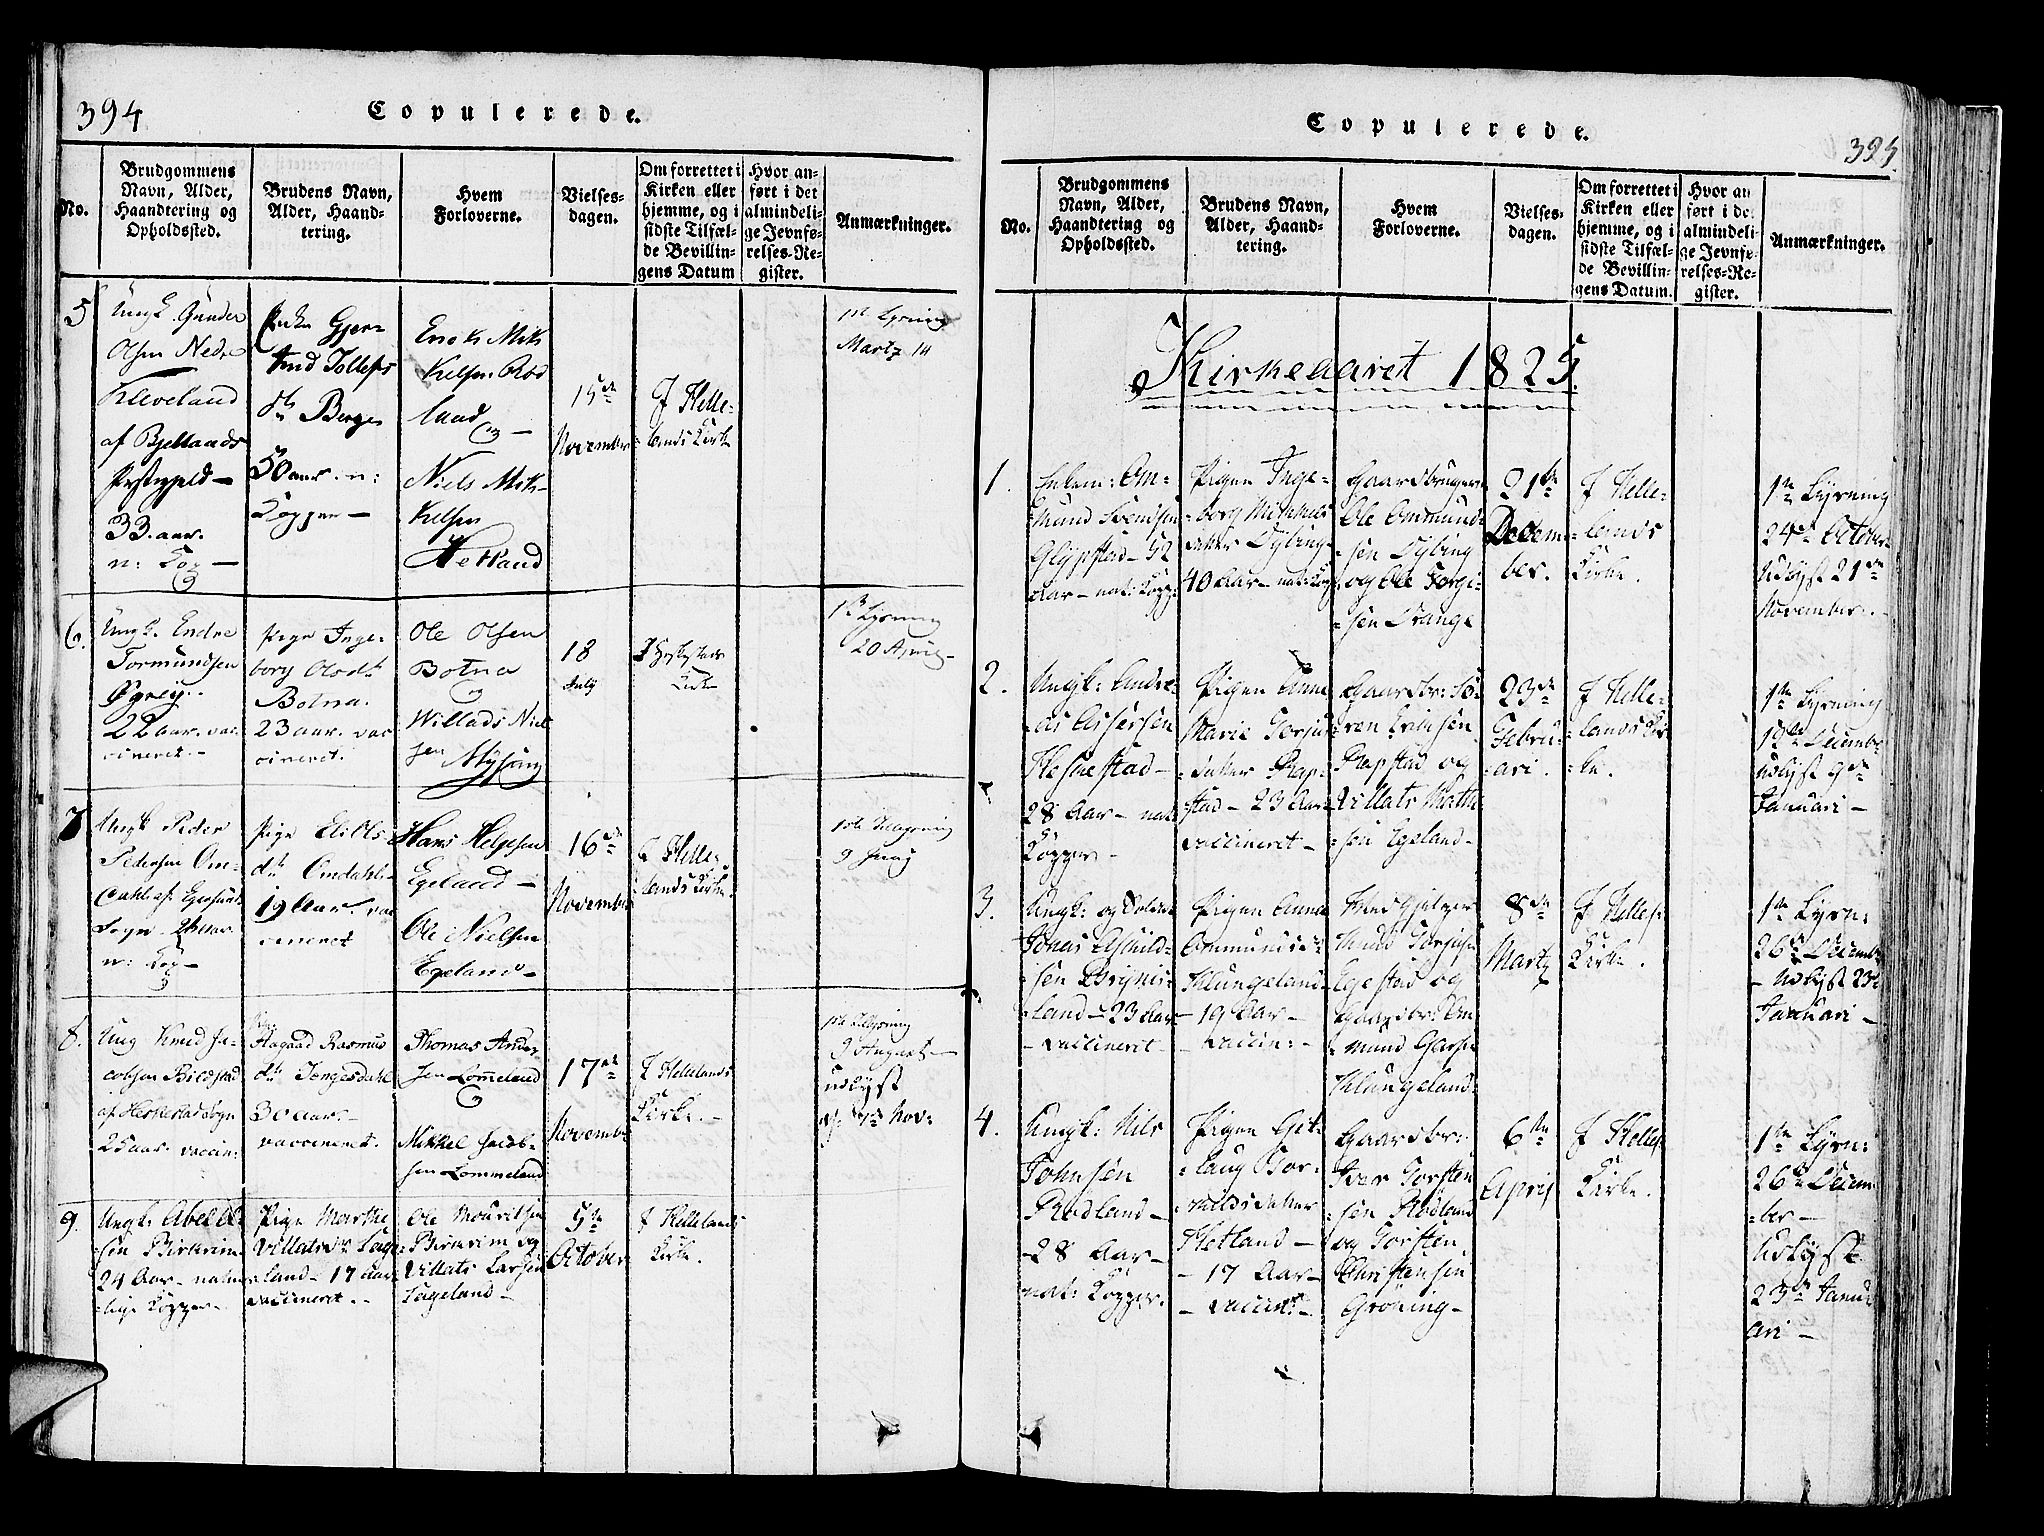 394
Copulerede.
No.
Brudgommens
Navn, Alder,
Haandtering og
Opholdssted.
Brudens Navn,
Alder, Haand-
tering.
Hvem
Forloverne.
Vielses-
dagen.
Om forrettet i
Kirken eller
hjemme, og i
sidste Tilfæl-
de Bevillin-
gens Datum
Hvor an-
ført i det
almindeli-
ge Jevnfø-
relses-Re-
gister.
Anmærkninger.
5
Ungk. Gunder
Olsen Nedre
Kleveland
af Bjellands
Præstegjeld —
33. aar.
n: Kop —
Pike Gjer-
trud Tollefs
dtr Berge
50 aar. n:
Kopper —
Enok Mik
kelsen Rod
land
Niels Mik-
kelsen
Hetland
15de
November
J Helle-
lands Kirke
1ste Lysning
Martz 14
6.
Ungk. Endre
Tormundsen
22 aar. vac
cineret. —
Pige Inge-
borg Olsdtr
Botna.
23 aar. vac
cineret.
Ole Olsen
Botna
Willads Niel
sen
18
July
Kirke
1ste Lysning
20
7
Ungk Peder
Pedersen Om-
dahl af
Sogn
n: Kop —
Pige Eli Ols
dtr Omdahl
19 Aar. vac
cineret
Hans Helgesen
Egeland —
Ole Nielsen
Egeland —
16de
November
J Helle-
lands Kirke.
9 Juny
8.
Ung Knud Ja-
cobsen Bilstad
af Heskestad Sogn
25 aar. vaccin:
Aagaad Rasmus
dtr
30 aar. —
vaccineret.
Thomas Ander
sen Lommeland
Mikkel Jacob-
sen Lommeland
17de
Novemb:
J Hellelands
Kirke. —
9 August —
udlyst
Nov:
9.
Ungk: Abel El-
sen Birkrim
24 Aar — natur
lige Kopper —
Pige Marthe
Villatsdr Lage
land — 17 aar
vaccineret. —
Ole Mouritsen
Birkrim og
Villats Larsen
Lageland —
5te
October
J Hellelands
Kirke.
Copulerede.
395
No.
Brudgommens
Navn, Alder,
Haandtering og
Opholdssted.
Brudens Navn,
Alder, Haand-
tering.
Hvem
Forloverne.
Vielses-
dagen.
Om forrettet i
Kirken eller
hjemme, og i
sidste Tilfæl-
de Bevillin-
gens Datum.
Hvor an
ført i det
almindeli-
ge Jevnfø-
relses-Re-
gister.
Anmærkninger.
Kirkeaaret 1825.
1.
Enkem: Om-
mund Svendsen
Glypstad — 52
Aar — nat: Kopp:
Pigen Inge-
borg Mikkels
datter Dybing
40 Aar — nat: Kop
Gaardbruger
Ole Ommund-
sen Dybing
og Ole Torgi-
sen Drange
21de
Decem-
ber.
J Helle-
lands
Kirke.
1ste Lysning
24de October
Udlyst 21de
November. —
2.
Ungk: Andre-
as Assersen
Hesnestad —
28 Aar — nat:
Kopper —
Pigen Anne
Marie Torju
datter Rap-
stad — 23 Aar
vaccineret —
Gaardbr: Sö-
ren Eriksen
Rapstad og
Villats Math
sen Egeland —
23de
Febru-
ari.
J Helle-
lands Kir-
ke.
1ste Lysning
12te Decembe
udlyst 9de
Januari —
3.
Ungk: og
Jonas Eskild-
sen Brynis-
land — 23 Aar
— vaccineret —
Pigen Anna
Ommundsd:
Klungeland
— 19 Aar —
— vaccin: —
Knud Torjus
Egestad og
Gaardbr: Om
mund Garse
Klungeland
8de
Martz
J Hellel:
Kirke.
1ste Lysn:
26de Decemb
— udlyst 23de
Januari —
4.
Ungk: Nils
Johnsen
Rodland —
— 28 Aar —
nat: Kopper.
Pigen Git-
laug Tor-
valdsdatter
Hetland —
— 17 Aar —
— vaccin: —
Gaardbr:
Iver Torsten
sen Rodland
og Torsten
Christensen
Gröning —
6te
April
J Hellel:
Kirke.
1ste Lysn:
26de Decem
ber —
Udlyst
23de Janu
ari —